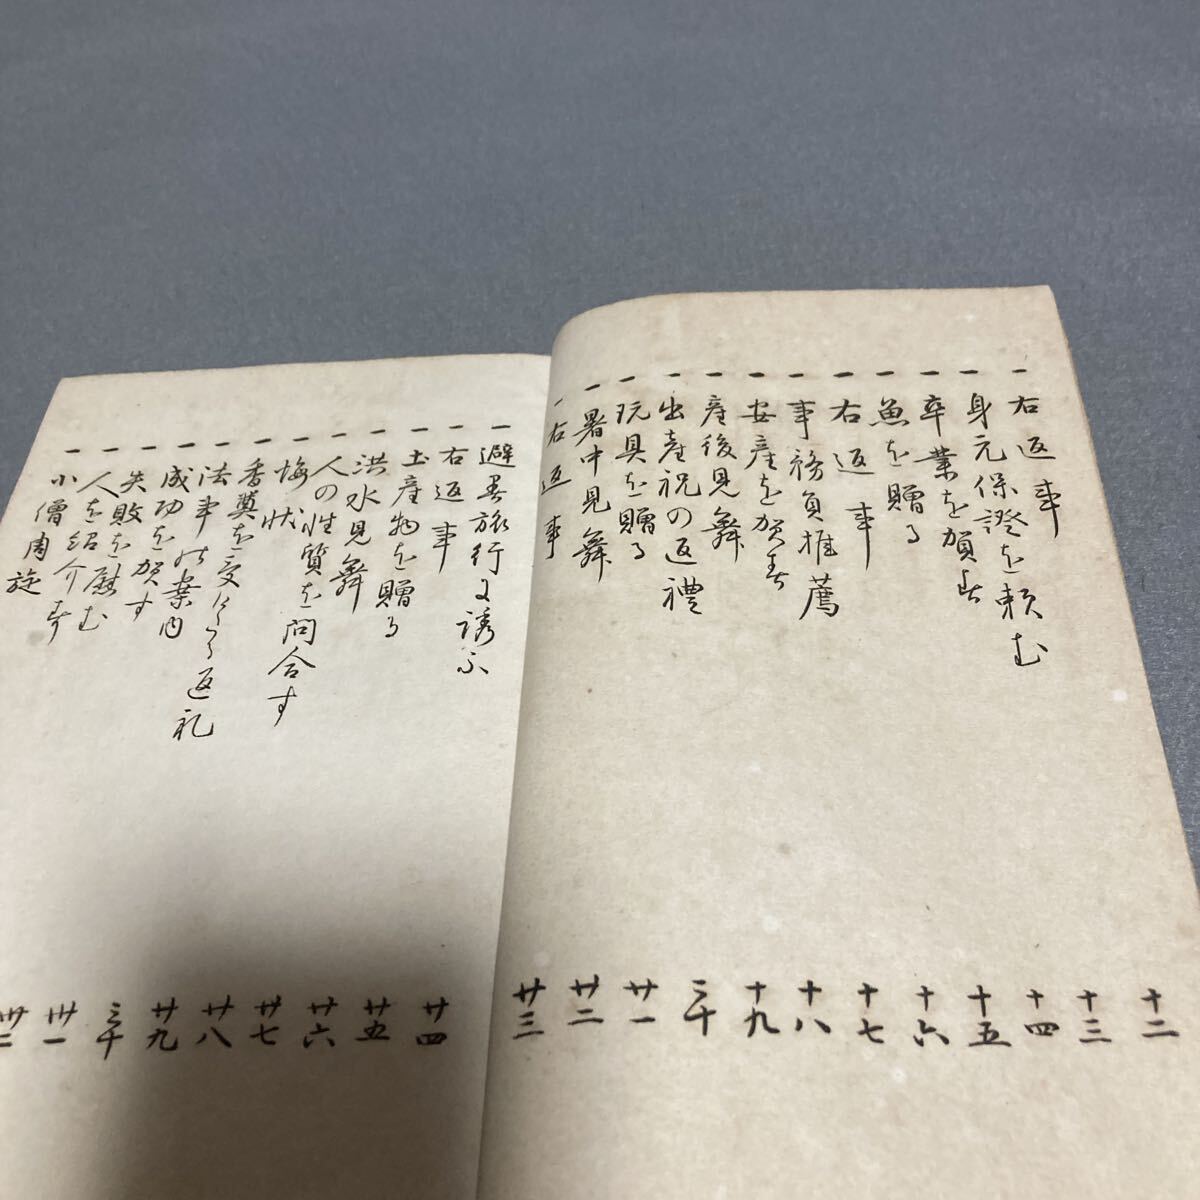 一 右返事 十二
一 身元保證を頼む 十三
一 卒業を賀す 十四
一 魚を贈る 十五
一 右返事 十六
一 事務員推薦 十七
一 安産を賀す 十八
一 産後見舞 十九
一 出産祝の返禮 二十
一 玩具を贈る 廿一
一 暑中見舞 廿二
一 右返事 廿三
一 避暑旅行に誘ふ 廿四
一 右返事
一 土産物を贈る 廿五
一 洪水見舞 廿六
一 人の性質を問合す 廿七
一 悔状 廿八
一 香奠を受けたる返礼 廿九
一 法事の案内 三十
一 成功を賀す 卅一
一 失敗を慰む 卅二
一 人を紹介す
一 小僧周旋